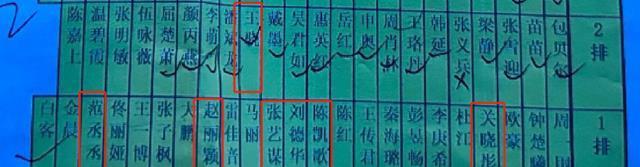 陈嘉上
温碧霞
张明敏
伍咏薇
屈楚萧
颜丙燕
李萌
潘斌龙
王
戴墨
吴君如
惠英红
岳红
申奥
周肖
王珞丹
韩延
张义兵
梁静
张雪迎
苗苗
包贝尔
2排
白客
金晨
范丞丞
佟丽娅
王一博
张子枫
大鹏
赵丽颖
雷佳音
马丽
张艺谋
刘德华
陈凯歌
陈红
王传君
秦海璐
彭昱畅
李庚希
杜江
关晓彤
欧豪
钟楚曦
周
1排